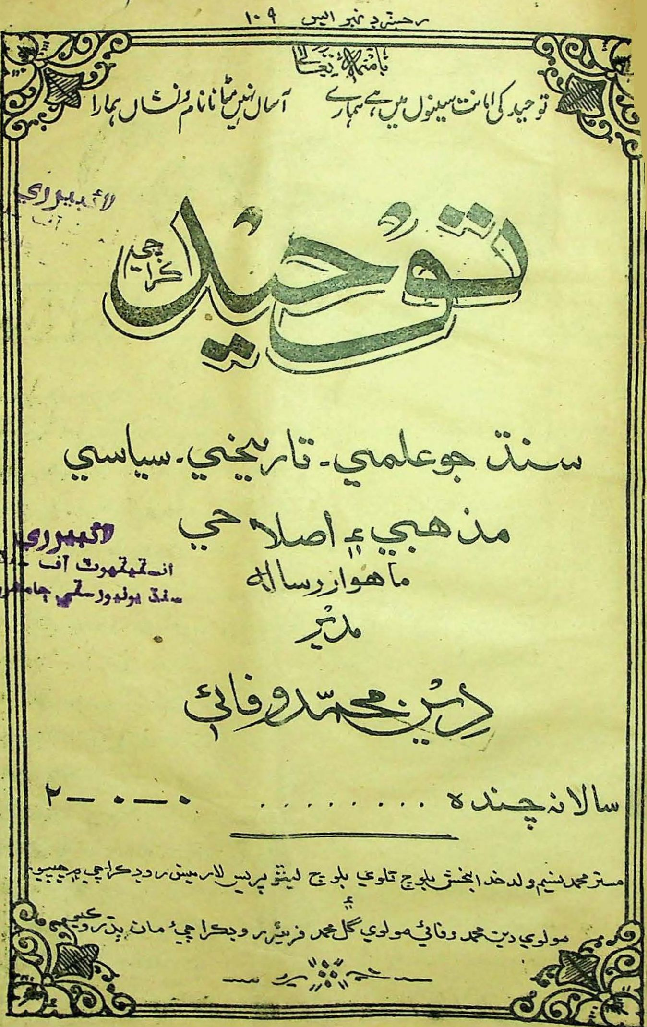 رجسٽرڊ نمبر ايس ۱۰۹
باسمه تعاليٰ
توحید کی امانت سینوں میں ہے ہمارے آساں نہیں مٹانا نام و نشاں ہمارا
توحيد
ڪراچي
لائبريري
آف
سنڌ جو علمي ـ تاريخي ـ سياسي
مذهبي ۽ اصلاحي
لائبريري
انسٽيٽيوٽ آف
سنڌ يونيورسٽي ڄامشورو
ماهوار رسالہ
مدير
دين محمد وفائي
سالانہ چندہ ......... ۰ — ۰ — ۲
مسٽر محمد نسيم ولد خدا بخش بلوچ ٿلوي بلوچ ليٿو پريس لارينس روڊ ڪراچي ۾ ڇپيو
۽
مولوي دين محمد وفائي مولوي گل محمد فريئر روڊ ڪراچيءَ مان پڌرو ڪيو